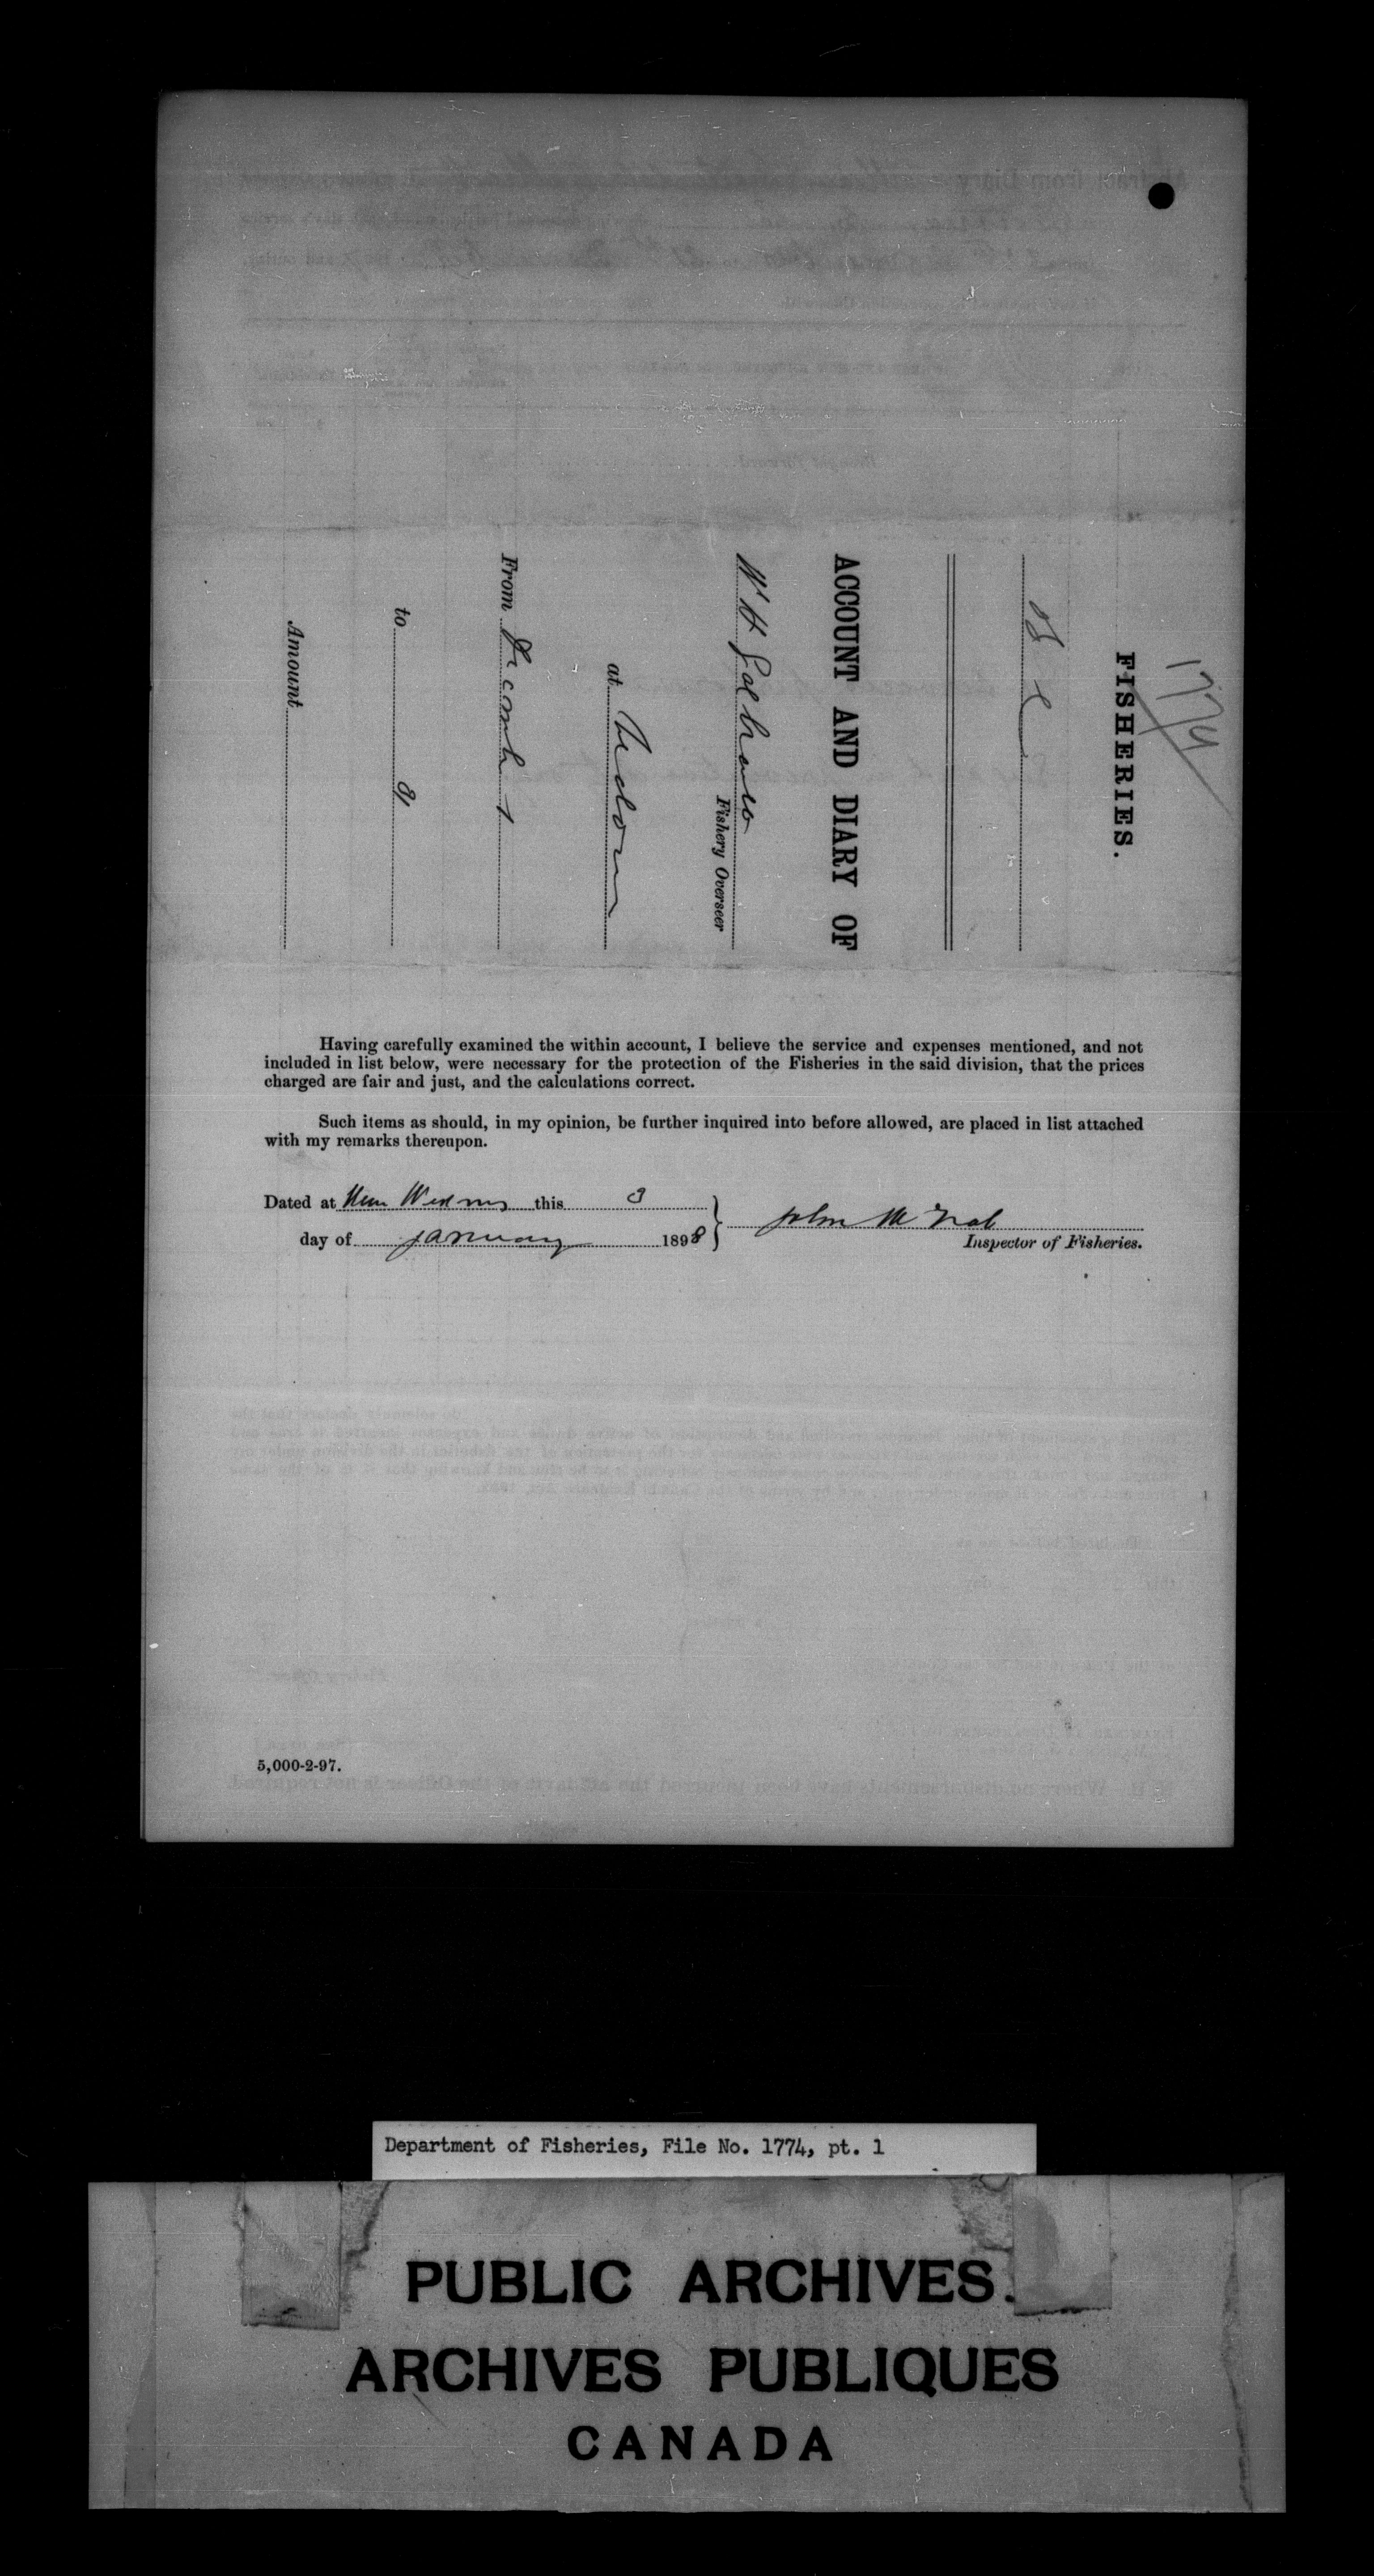 1774
FISHERIES.
B C
ACCOUNT AND DIARY OF
W H
Fishery Overseer
at
From
to
Amount
Having carefully examined the within account, I believe the service and expenses mentioned, and not
included in list below, were necessary for the protection of the Fisheries in the said division, that the prices
charged are fair and just, and the calculations correct.
Such items as should, in my opinion, be further inquired into before allowed, are placed in list attached
with my remarks thereupon.
Dated at this 3
day of January 1898
John
Inspector of Fisheries.
5,000-2-97.
Department of Fisheries, File No. 1774, pt. 1
PUBLIC ARCHIVES.
ARCHIVES PUBLIQUES
CANADA